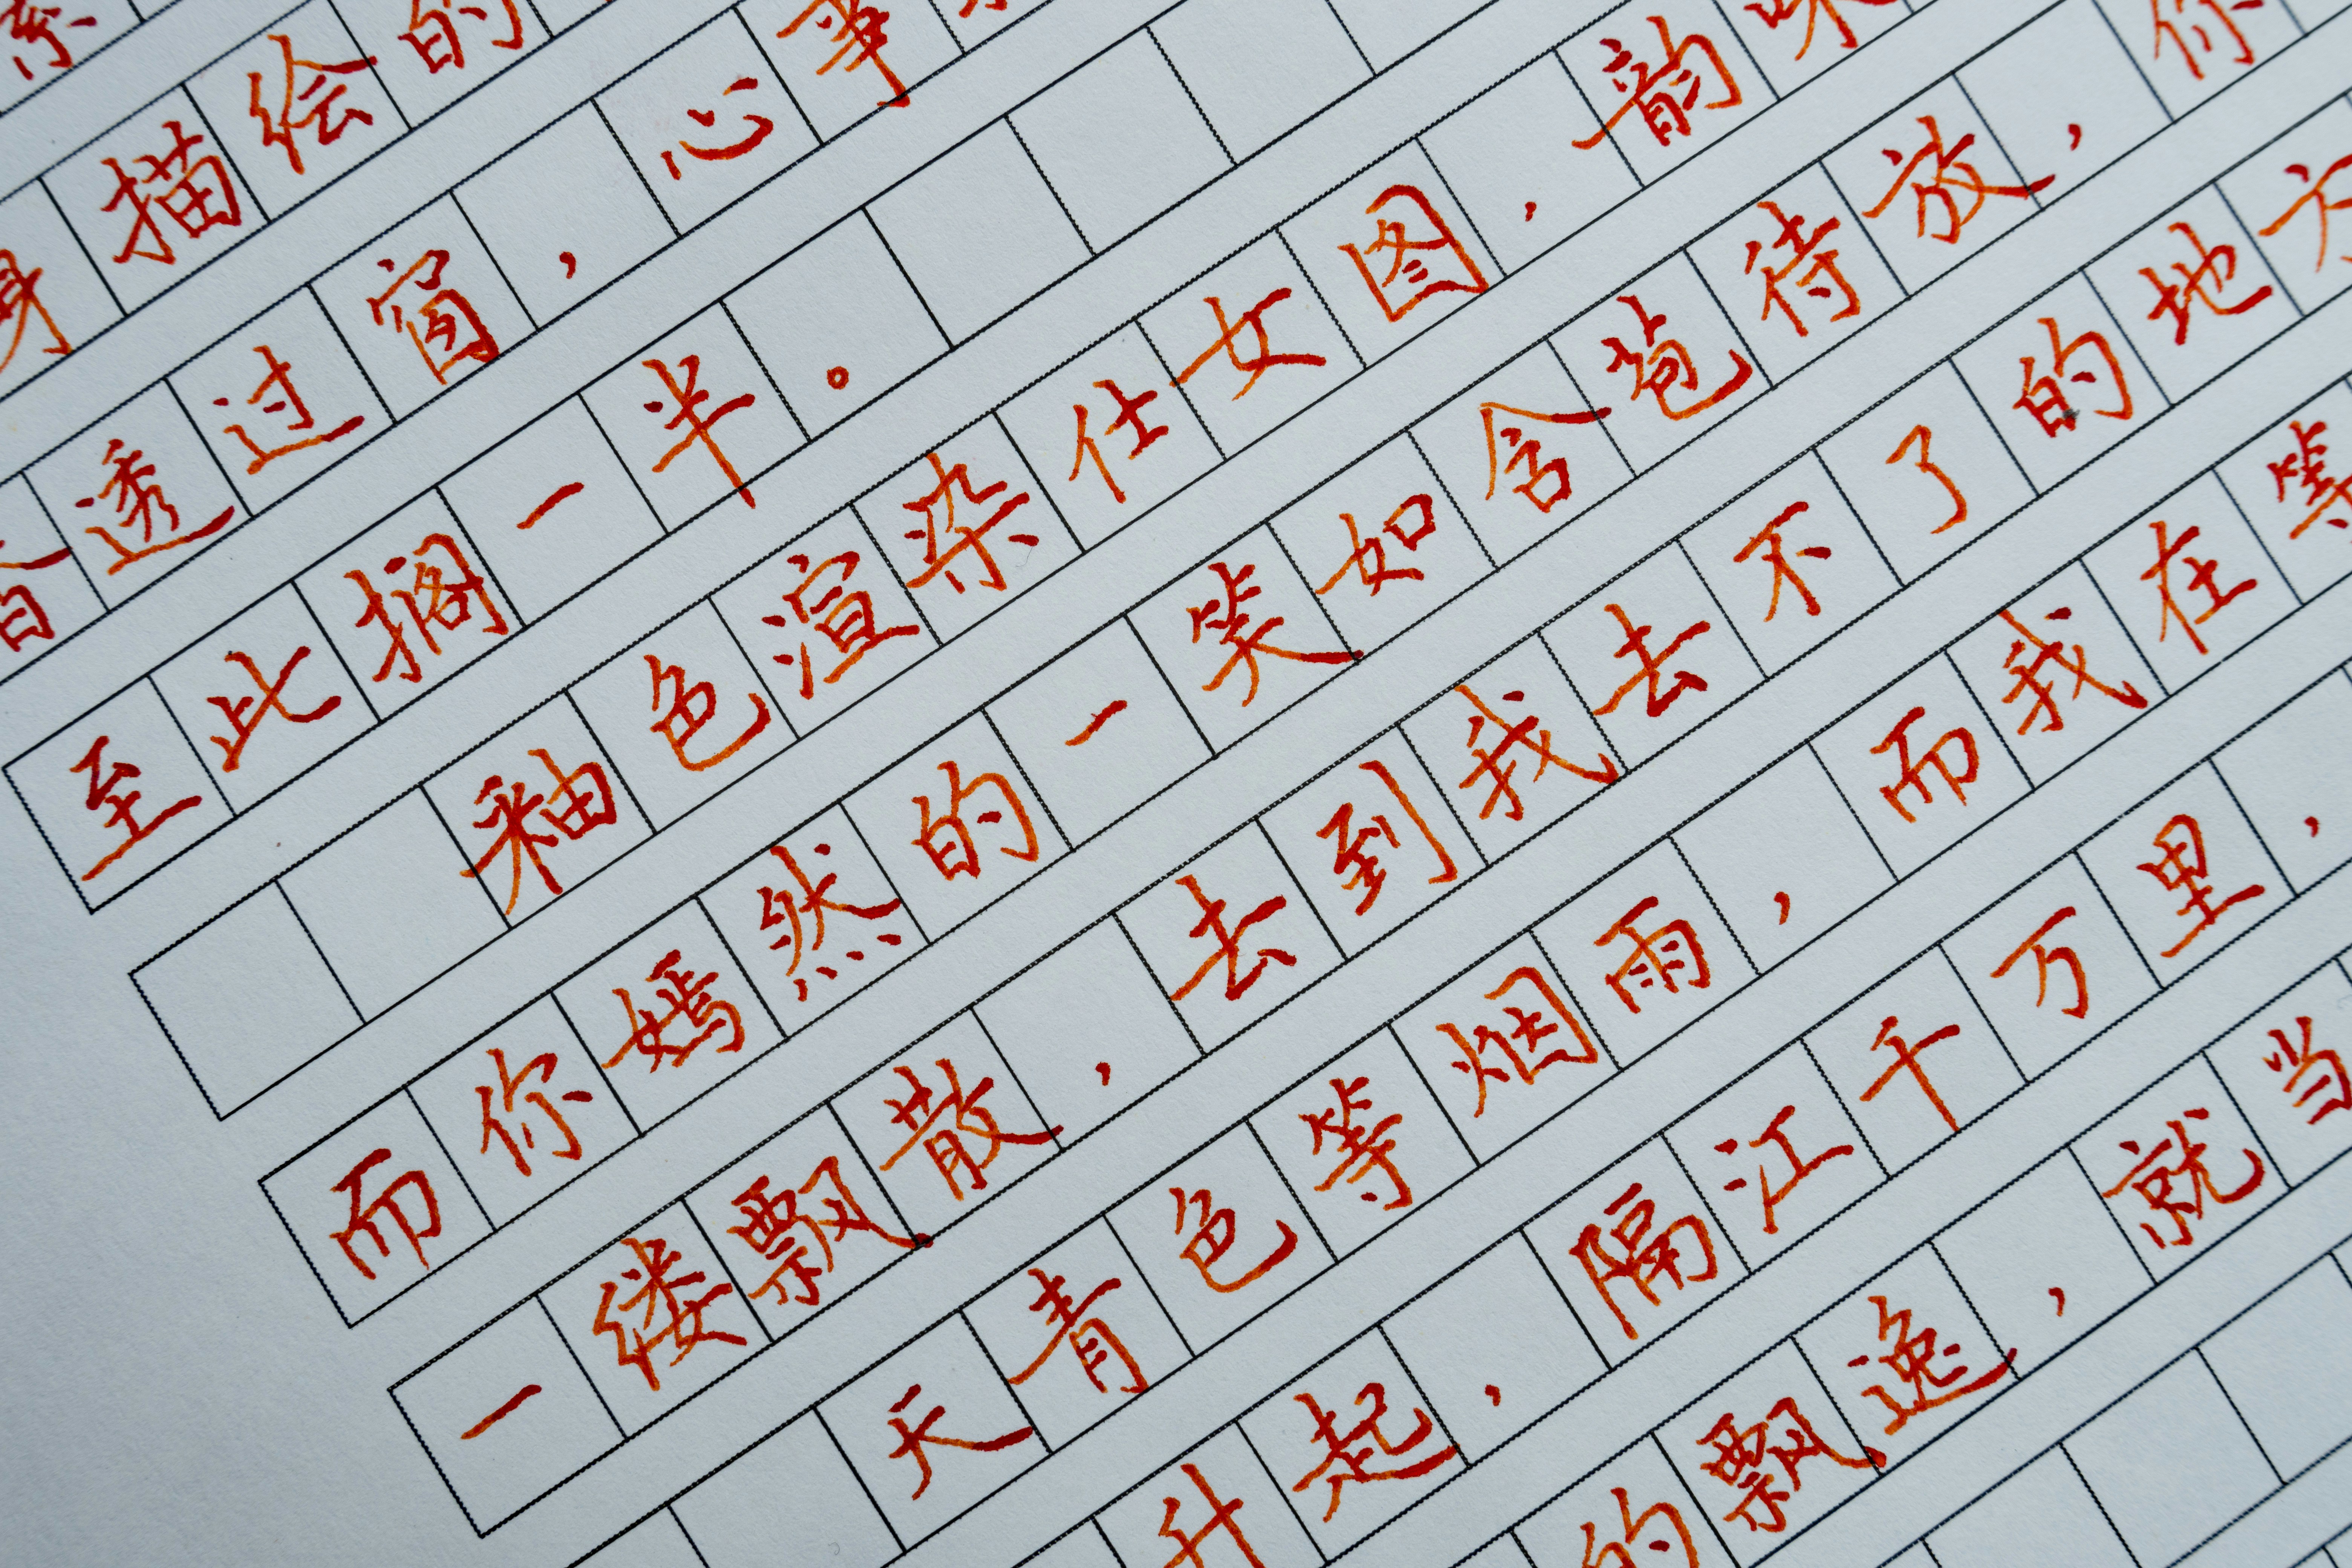 身描绘的
香透过窗，心事
至此搁一半。
釉色渲染仕女图，韵味
而你嫣然的一笑如含苞待放，你
一缕飘散，去到我去不了的地方
天青色等烟雨，而我在等
升起，隔江千万里，
的飘逸，就当